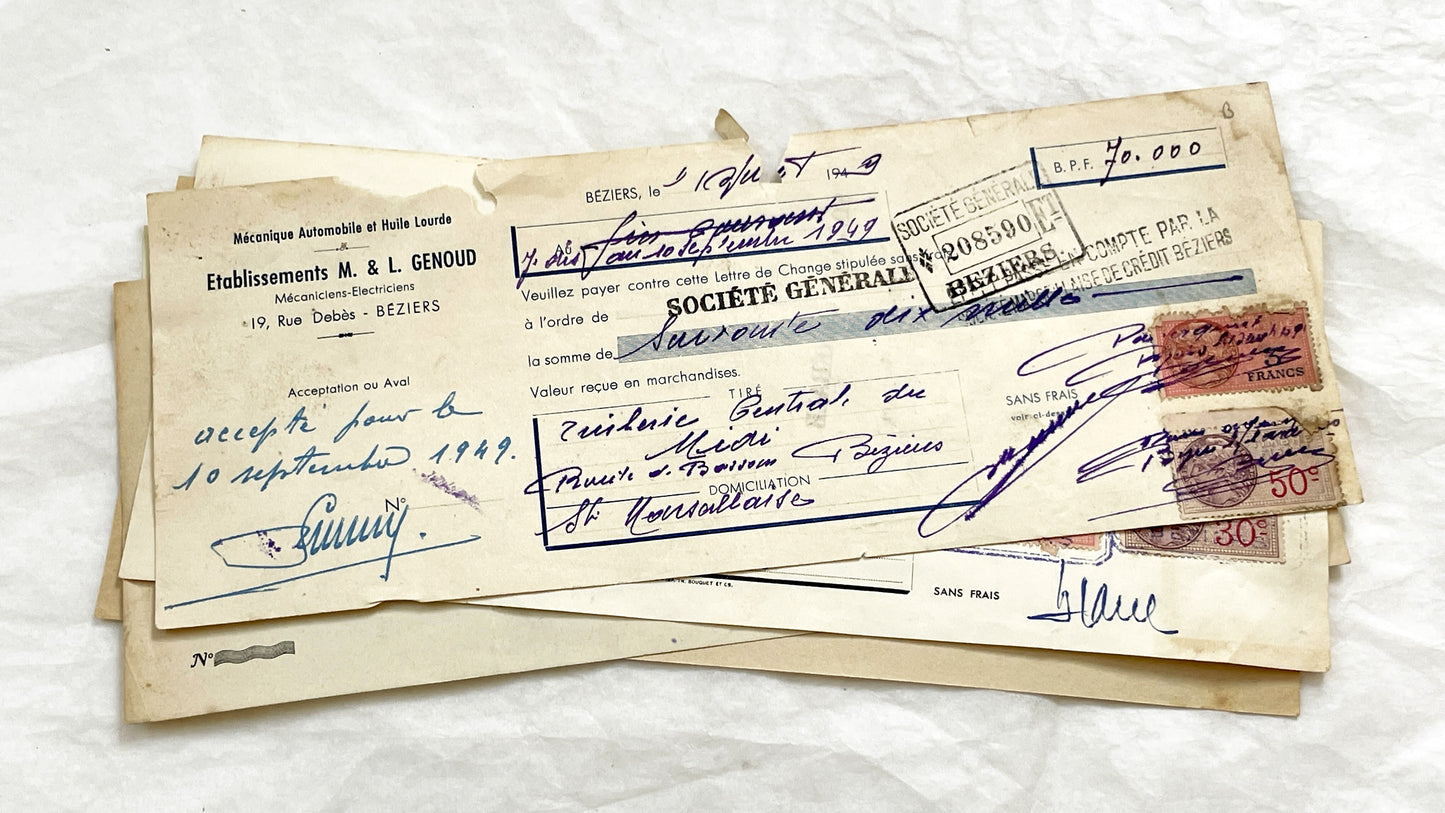 B
Mécanique Automobile et Huile Lourde
Etablissements M. & L. GENOUD
Mécaniciens-Electriciens
19, Rue Debès - BÉZIERS
Acceptation ou Aval
accepte pour le
10 septembre 1949.
N°
BÉZIERS, le 1949
B. P. F. 70.000
au 10 septembre 1949
Veuillez payer contre cette Lettre de Change stipulée sans
à l'ordre de SOCIÉTÉ GÉNÉRALE
la somme de Soixante dix mille
Valeur reçue en marchandises.
SOCIÉTÉ GÉNÉRALE
208590
BÉZIERS
COMPTE PAR LA
DE CRÉDIT BÉZIERS
TIRÉ
Tuilerie Centrale du
Midi
Route de Bessan Béziers
DOMICILIATION
Sté Marseillaise
SANS FRAIS
voir ci-dessous
5
FRANCS
50c
30c
TH. BOUQUET ET CB.
SANS FRAIS
N°